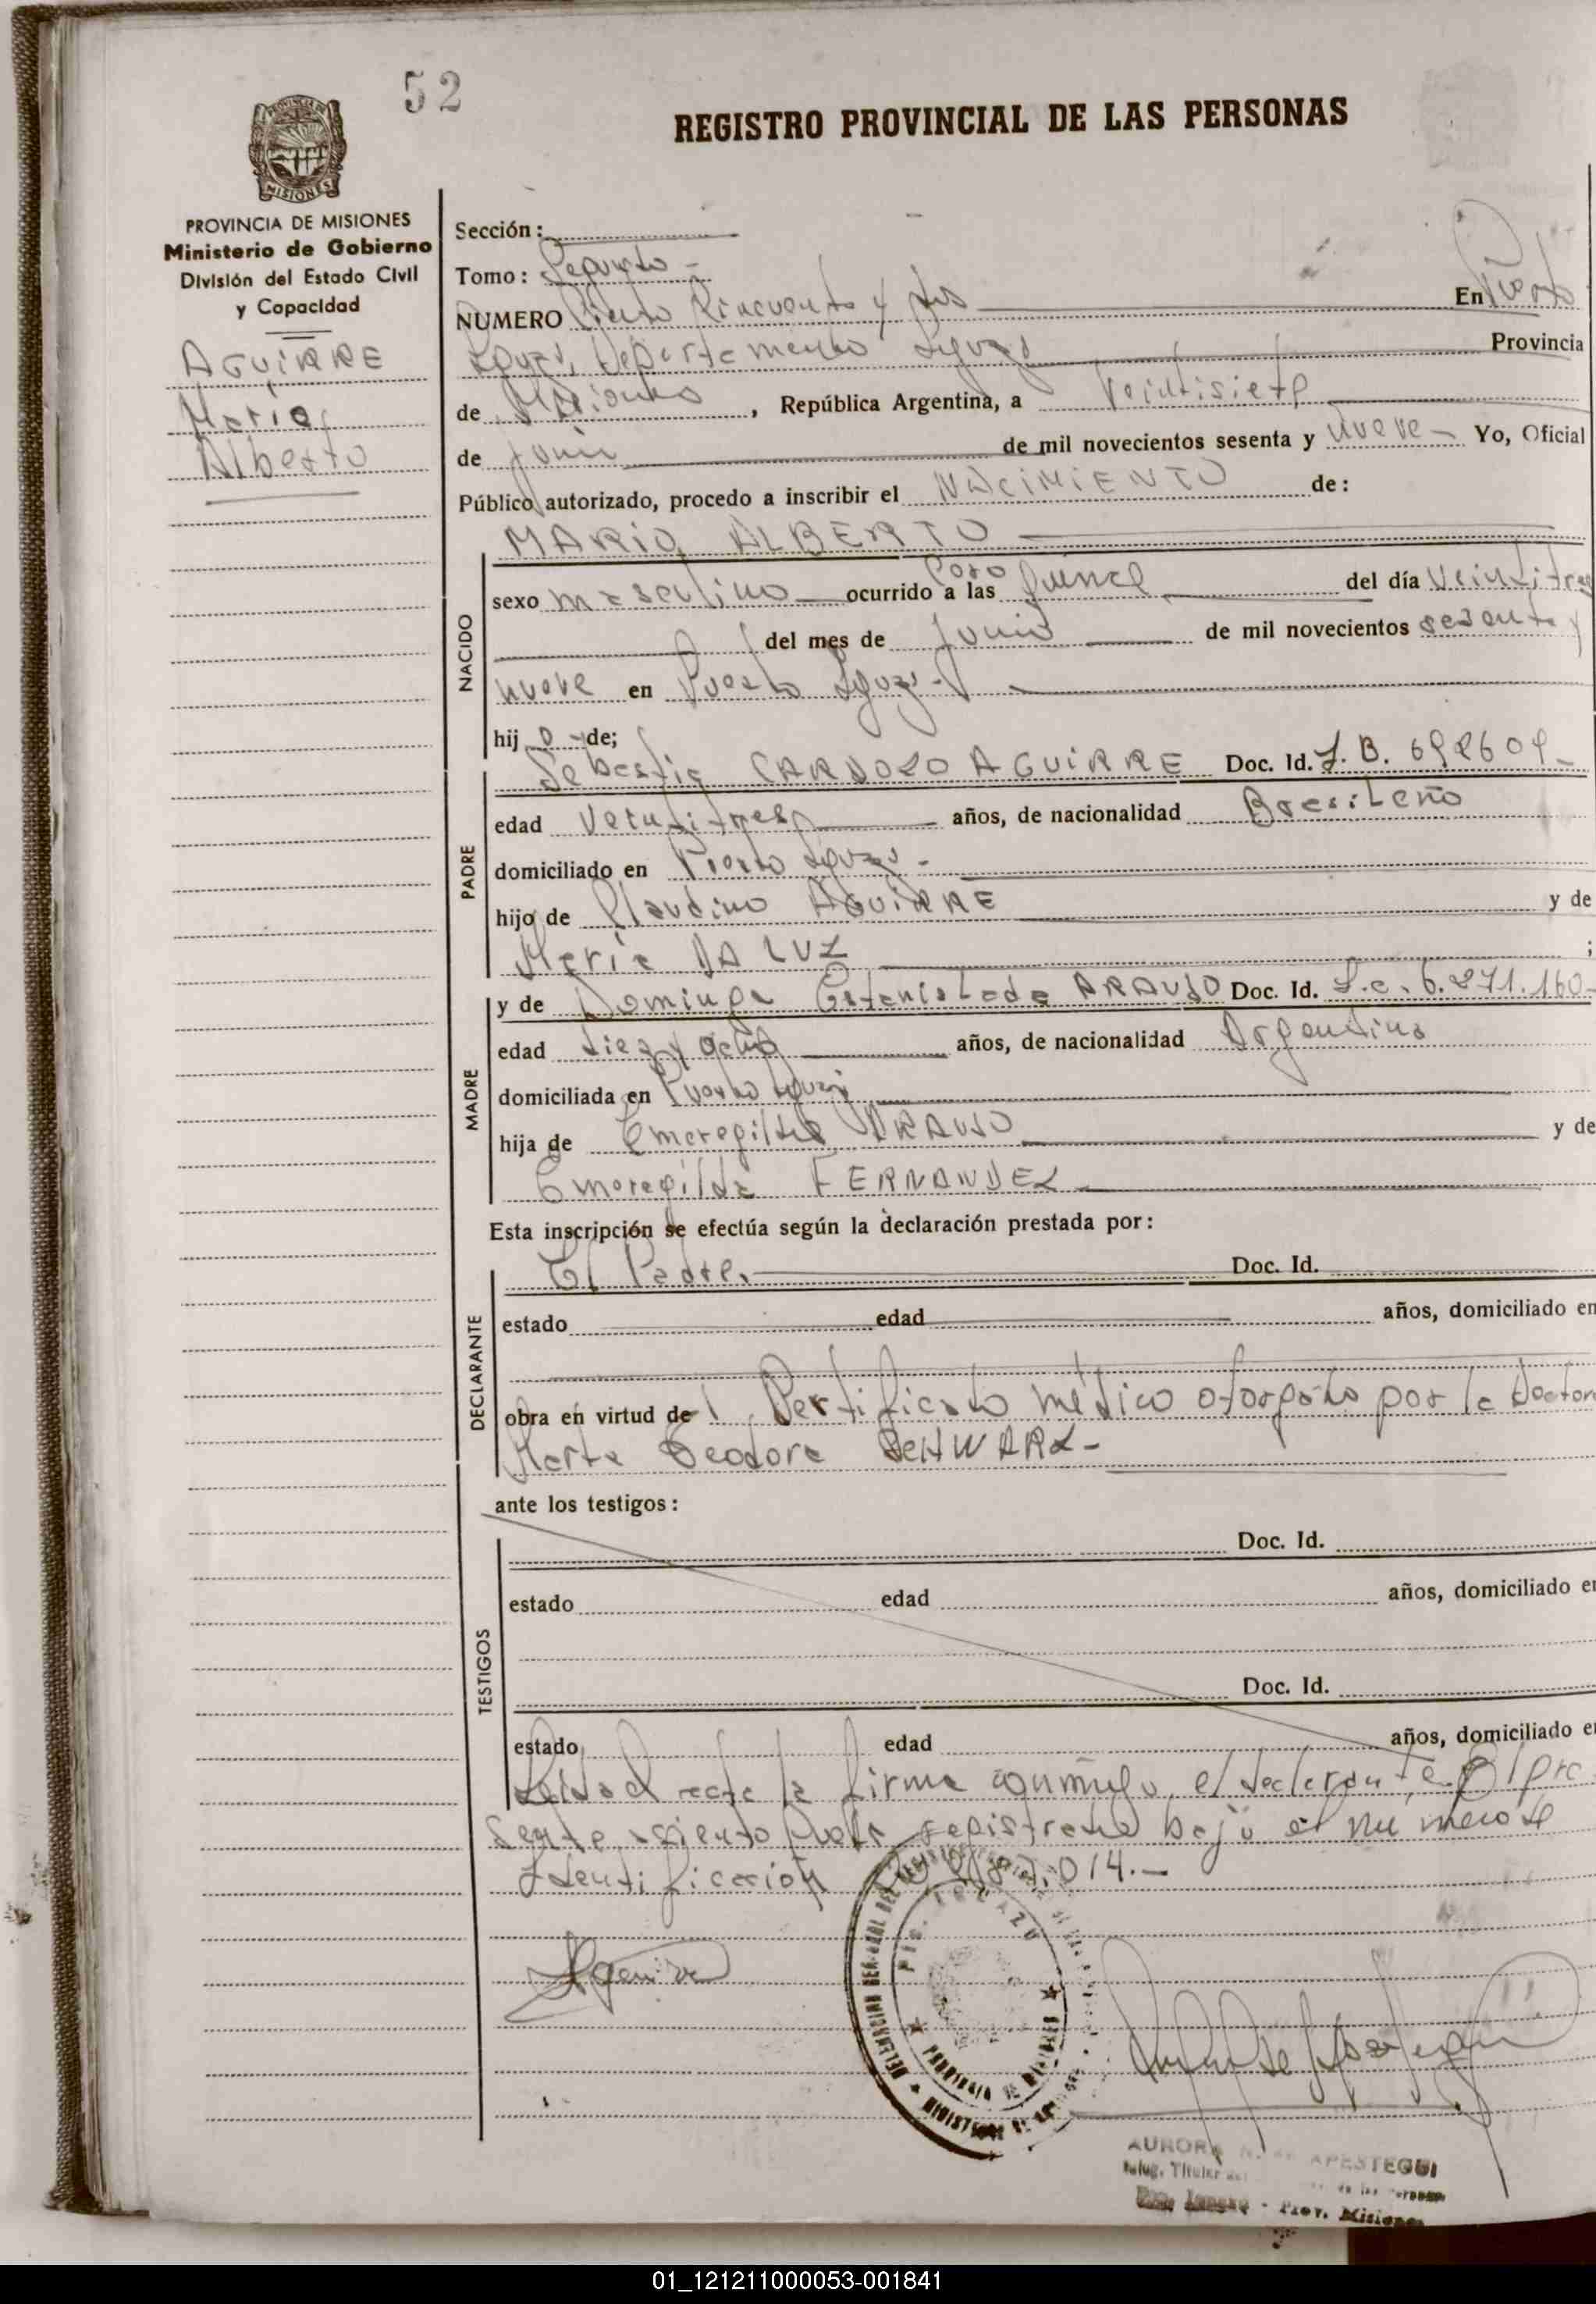 52
REGISTRO PROVINCIAL DE LAS PERSONAS
PROVINCIA DE MISIONES
MISIONES
PROVINCIA DE MISIONES
Ministerio de Gobierno
División del Estado Civil
y Capacidad
AGUIRRE
Mario
Alberto
Sección:
Tomo: Segundo -
NUMERO Ciento Cincuenta y dos En Puerto
Iguazú, Departamento Iguazú Provincia
de Misiones, República Argentina, a Veintisiete
de Junio de mil novecientos sesenta y nueve - Yo, Oficial
Público autorizado, procedo a inscribir el NACIMIENTO de:
MARIO ALBERTO
NACIDO
sexo masculino ocurrido a las Cero quince del día veintitres
del mes de Junio de mil novecientos sesenta y
nueve en Puerto Iguazú -
hij o - de;
PADRE
Sebastia CARDOZO AGUIRRE Doc. Id. I. B. 692609 -
edad Veintitres años, de nacionalidad Brasileño
domiciliado en Puerto Iguazú -
hijo de Claudino AGUIRRE y de
María DA LUZ ;
MADRE
y de Dominga Estanislada ARAUJO Doc. Id. L.c. 6.271.160-
edad diez y ocho años, de nacionalidad Argentina
domiciliada en Puerto Iguazú
hija de Emeregildo ARAUJO y de
Emeregilda FERNANDEZ -
Esta inscripción se efectúa según la declaración prestada por:
DECLARANTE
El Padre. Doc. Id.
estado edad años, domiciliado en
obra en virtud de l Certificado médico otorgado por la Doctora
Marta Teodora SCHWARZ -
ante los testigos:
TESTIGOS
Doc. Id.
estado edad años, domiciliado en
Doc. Id.
estado edad años, domiciliado en
Leída el acta la firma conmigo, el declarante. El pre-
sente asiento registrado bajo el número de
Identificación 014.-
Aguirre
DELEGACION
PTO. IGUAZU
PROVINCIA DE MISIONES
MINISTERIO DE
AURORA APESTEGUI
Titular de las Personas
Pto. Iguazú - Prov. Misiones
01_121211000053-001841